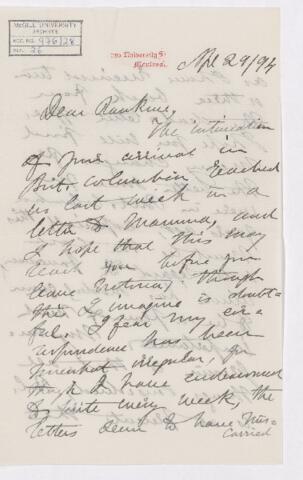 McGILL UNIVERSITY
ARCHIVES
ACC. NO. 976/28
REF. 26
University St
Montreal.
Apl 29/94
Dear Rankine,
The intimation
of your arrival in
Brit. Columbia reached
us last week in a
letter to Mamma, and
I hope that this may
reach you before you
leave Victoria, though
this I imagine is doubt-
ful. I fear my cor-
respondence has been
somewhat irregular, for
I have endeavoured
to write every week, the
letters seem to have mis-
carried